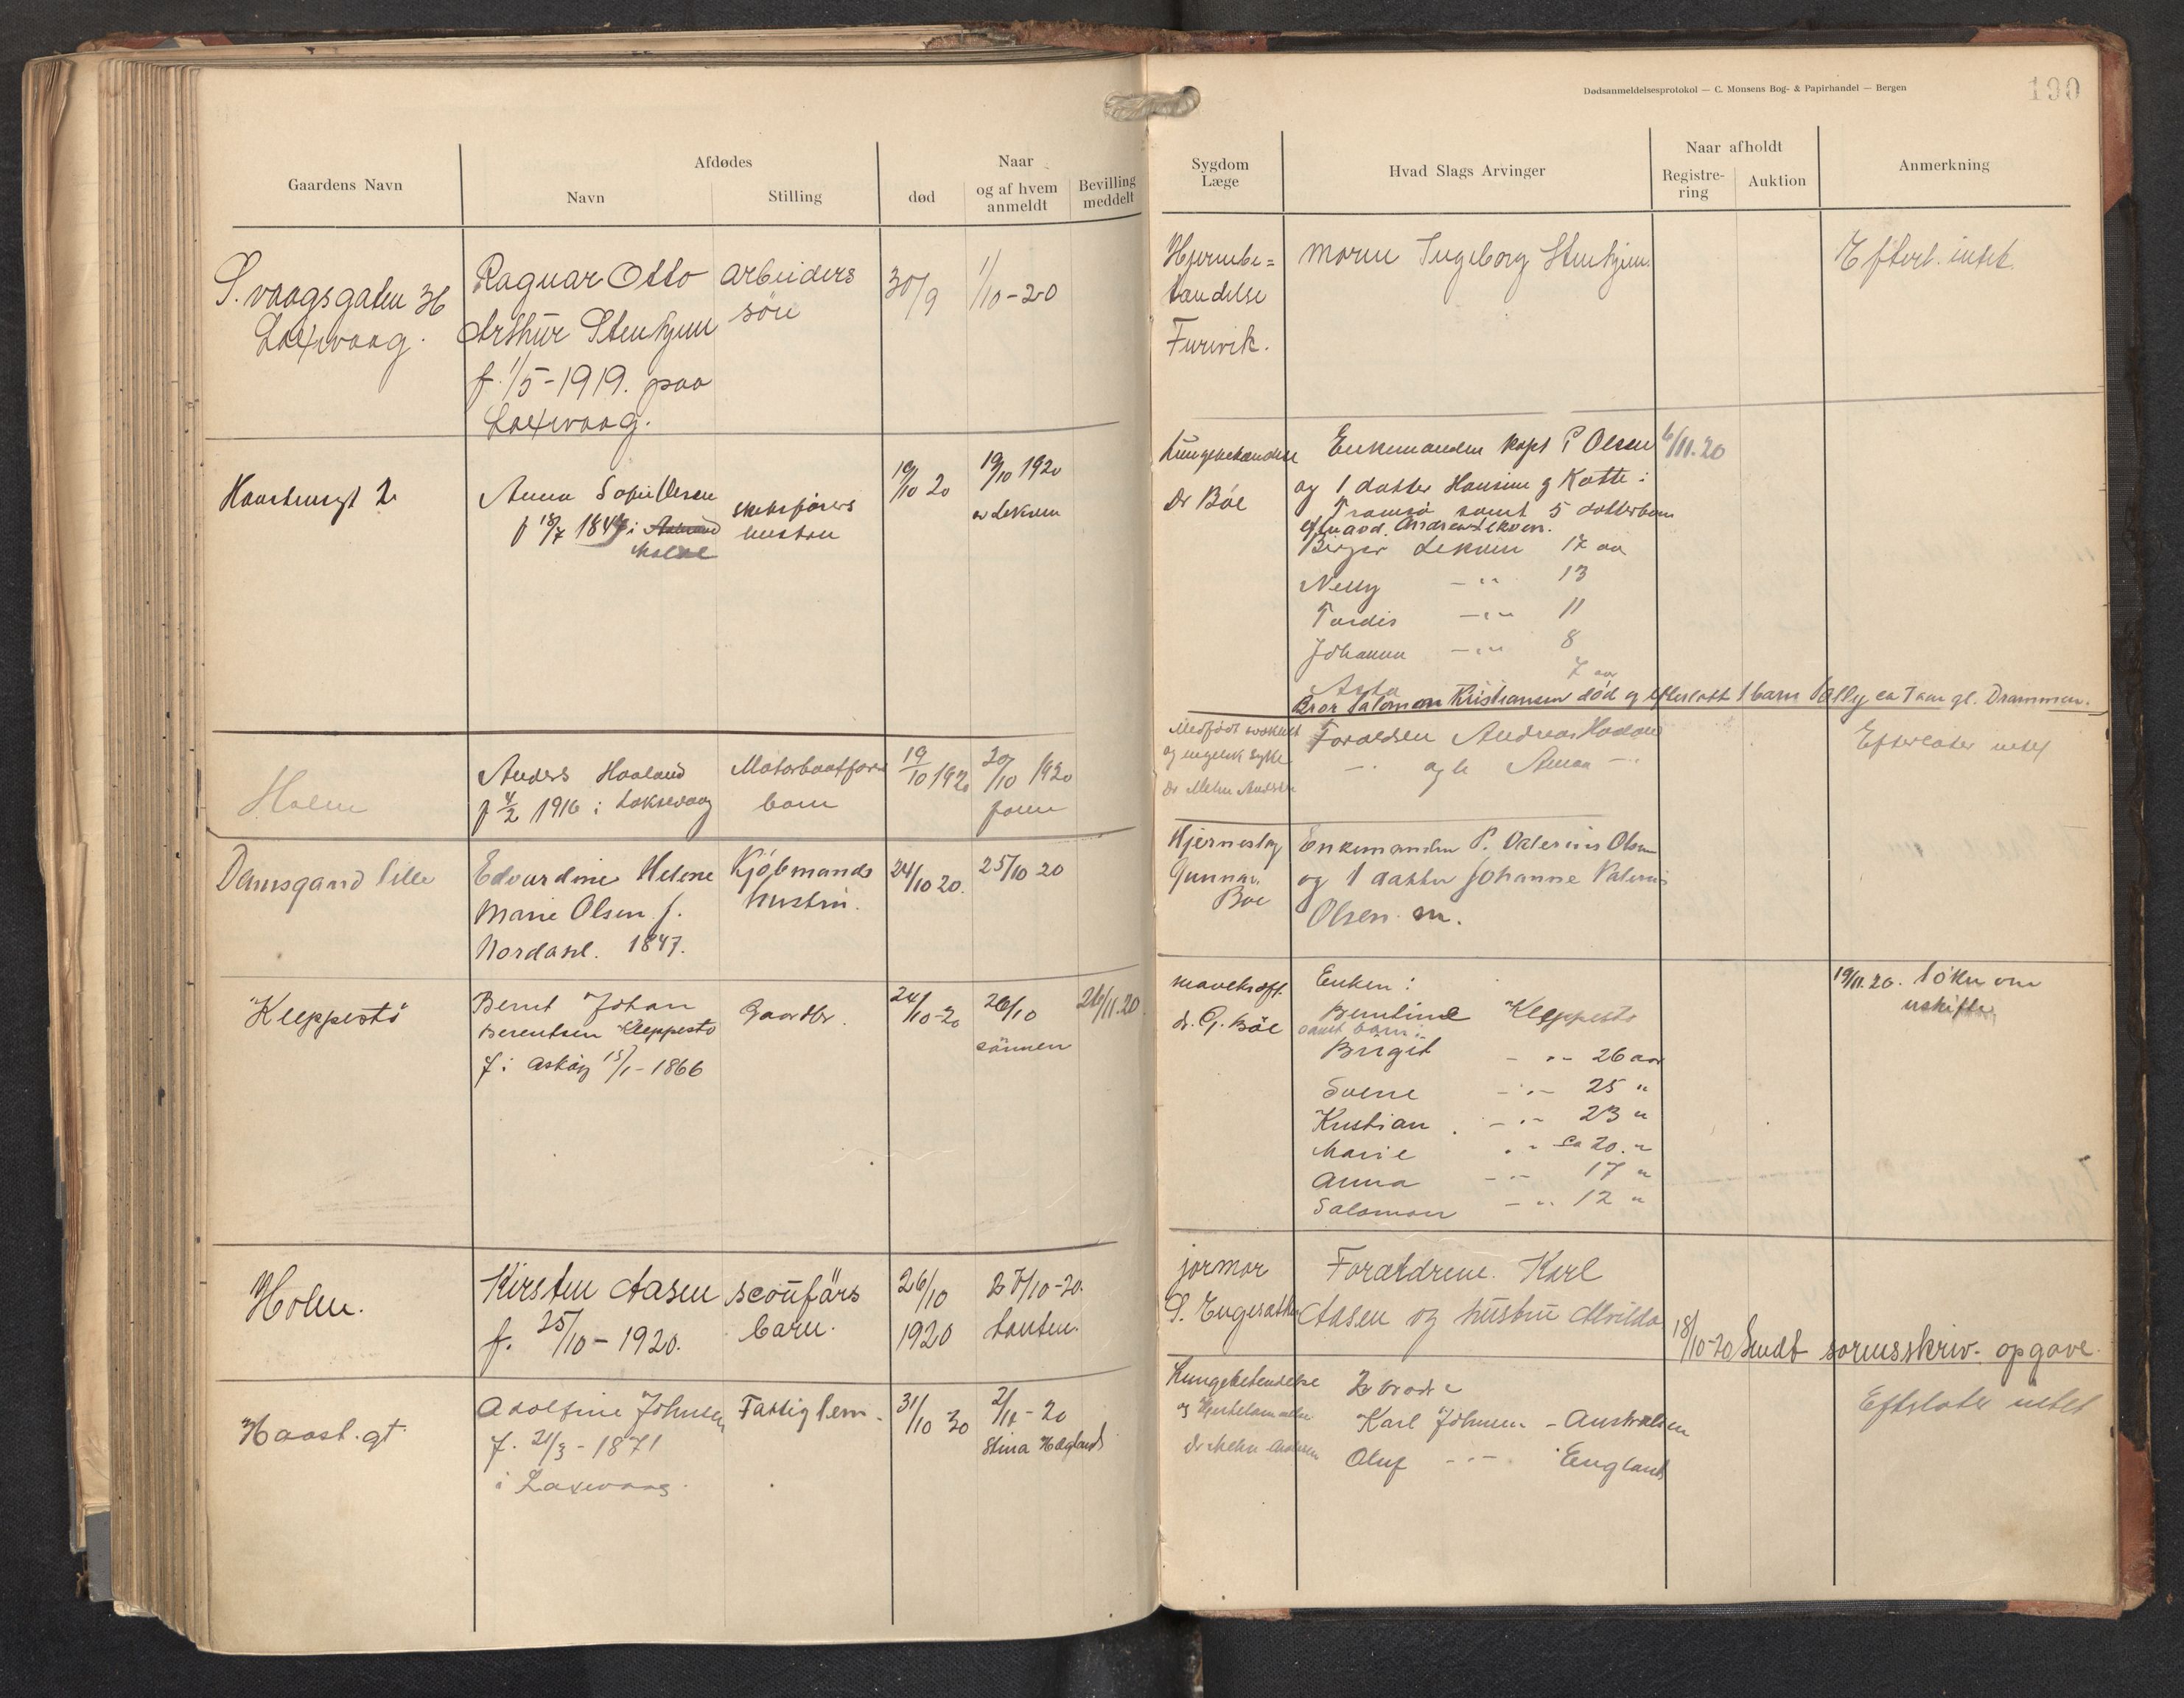 Dødsanmeldelsesprotokol — C. Monsens Bog- & Papirhandel — Bergen
190
Gaardens Navn
Afdødes
Navn
Stilling
Naar
død
og af hvem
anmeldt
Bevilling
meddelt
Sygdom
Læge
Hvad Slags Arvinger
Naar afholdt
Registre-
ring
Auktion
Anmerkning
S. vaagsgaten 36
Laxevaag.
Ragnar Otto
Arthur
f. 1/5-1919. paa
Laxevaag.
arbeiders
søn
30/9
1/10-20
Hjernebe=
tændelse
Furevik.
Moren Ingeborg
Efterl. intet.
2
Anna Sofie Olsen
f 18/7 i
hustru
19/10 20
19/10 1920
Lungebetændelse
Dr Bøe
Enkemanden kapt P Olsen
og 1 datter Hansine g Kotte i
Tromsø samt 5 datterbørn
Birger Lekven 17 aar
Nelly -"- 13
Tordis -"- 11
Johanna -"- 8
7 aar
Asta
Bror Salomon Kristiansen død og efterlatt 1 barn ca 7 aar gl. Drammen.
6/11.20
Holm
Anders Haaland
f 4/2 1916 i Laksevaag
barn
19/10 1920
20/10 1920
faren
Medfødt svakhet
og engelsk syke
Dr Mehn Andersen
Forældrene Andreas Haaland
-"- og h Anna -"-
Efterlater intet
Damsgaard lille
Edvardine Helene
Marie Olsen f.
1847.
Kjøbmands
hustru.
24/10 20.
25/10 20
Hjerneslag
Gunnar
Bøe
Enkemanden P. Valerius Olsen
og 1 datter Johanne Valerius
Olsen m.
Kleppestø
Bernt Johan
Berentsen Kleppestø
f. i Askøy 15/1-1866
Gaardbr.
24/10-20
26/10
sønnen
26/11.20
mavekræft
dr. G. Bøe
Enken:
Berntine Kleppestø
samt barn:
Birgit -"- 26 aar
Sverre -"- 25 "
Kristian -"- 23 "
Marie " ca 20. "
Anna -"- 17 "
Salomon -"- 12 "
19/11.20. søker om
uskifte
Holm.
Kirsten Aasen
f. 25/10-1920.
barn.
26/10
1920
27/10-20.
tanten.
jormor
S. Engesæther
Forældrene. Karl
Aasen og hustru Alvilda
18/10-20 Sendt sorensskriv. opgave.
Haast.gt.
Adolfine Johnsen
f. 21/3-1871
i Laxevaag
Fattiglem.
31/10 20
2/11-20
Stina Hægland
Lungebetændelse
og
Dr Mehn Andersen
2 brødre
Karl Johnsen - Australien
Oluf -"- England
Efterlater intet